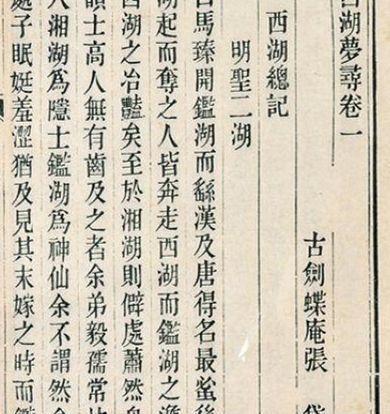 西湖夢尋卷一
古劍蝶庵張岱
西湖總記
明聖二湖
自馬臻開鑑湖而繇漢及唐得名最蚤後
湖起而奪之人皆奔走西湖而鑑湖之澹
西湖之冶豔矣至於湘湖則僻處蕭然舟
韻士高人無有齒及之者余弟毅孺常比
人湘湖爲隱士鑑湖爲神仙余不謂然
處子眠娗羞澀猶及見其未嫁之時而鑑